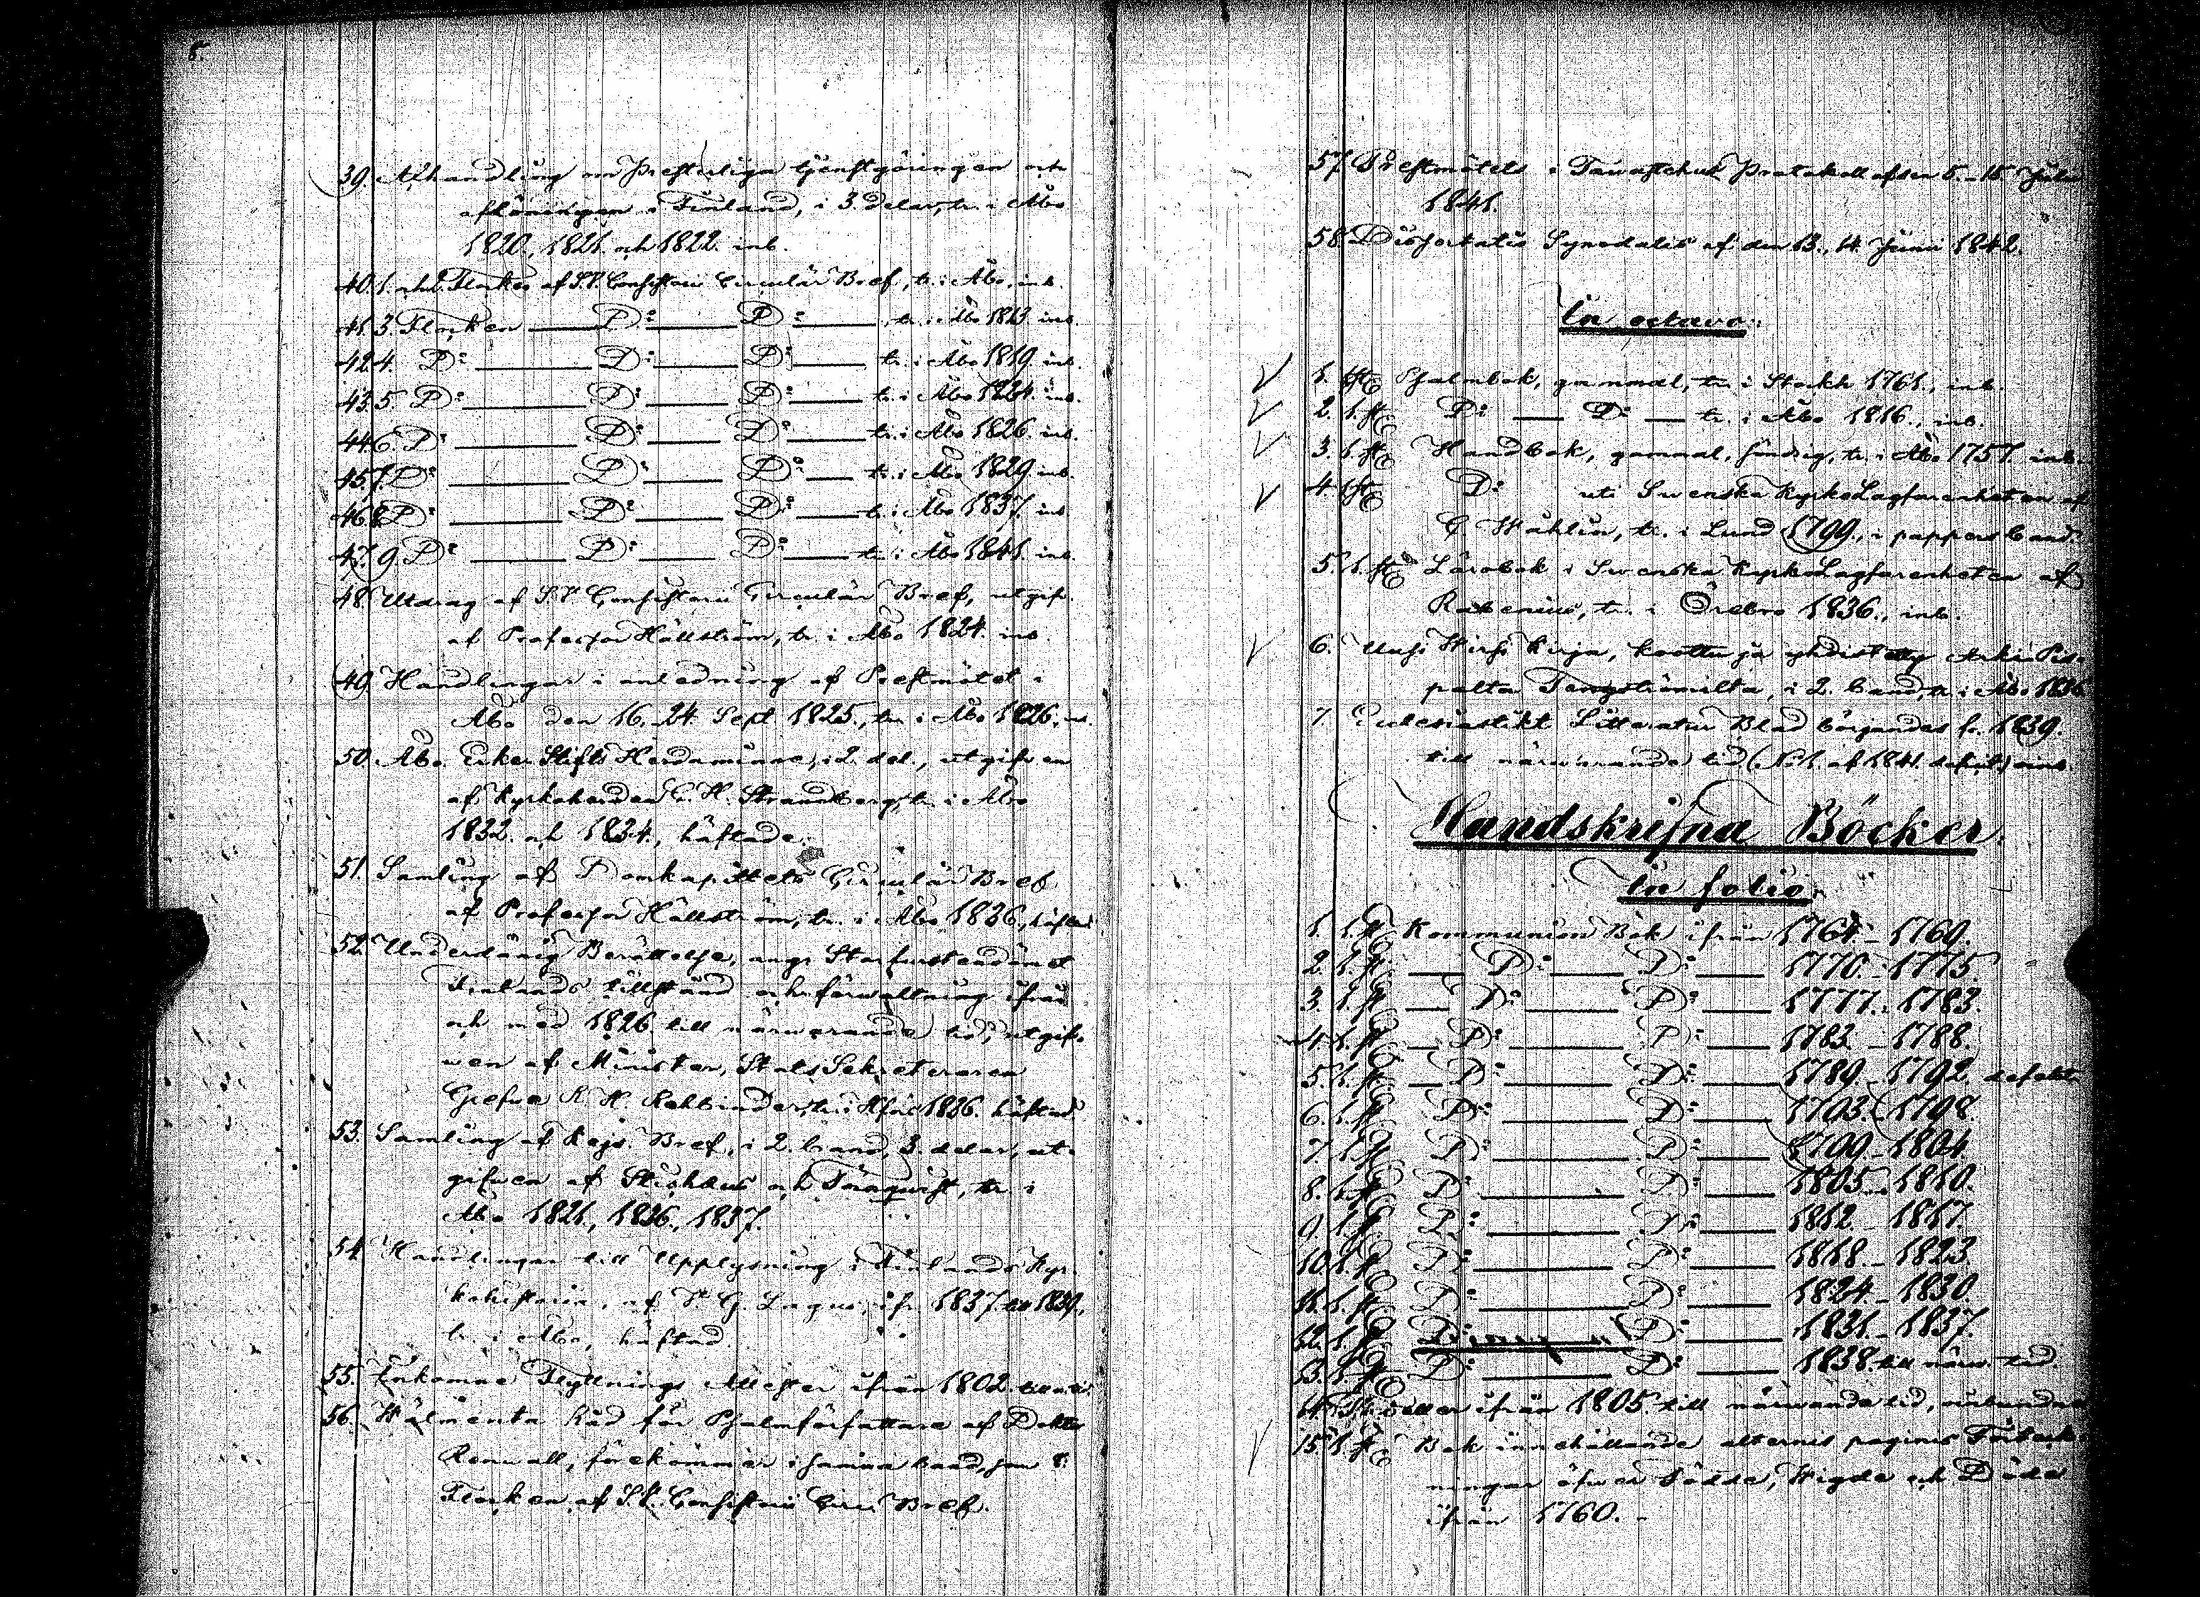 8.
39. Afhandling om Presterliga tjenstgöringen och
aflöningen i Finland, i 3. delar, tr. i Åbo
1820, 1821. och 1822. inb.
40. 1. och 2. Flocken af S.V. Consistorii Circulär Bref, tr. i Åbo, inb.
41. 3 Flocken — D:o — D:o — , tr. i Åbo 1813 inb.
42. 4. D:o — D:o — D:o — tr. i Åbo 1819. inb.
43. 5. D:o — D:o — D:o — tr. i Åbo 1824. inb.
44. 6. D:o — D:o — D:o — tr. i Åbo 1826. inb.
45. 7. D:o — D:o — D:o — tr. i Åbo 1829 inb.
46. 8. D:o — D:o — D:o — tr. i Åbo 1837. inb
47. 9. D:o — D:o — D:o — tr. i Åbo 1841. inb.
48. Utdrag af S.V. Consistorii Circulär Bref, utgifv.
af Professor Hällström, tr. i Åbo 1824. inb
49. Handlingar i anledning af Prestmötet i
Åbo den 16.-24. Sept. 1825., tr. i Åbo 1826, inb.
50. Åbo Erke Stifts Herdaminne, i 2. del., utgifven
af Kyrkoherden C. H. Strandberg, tr. i Åbo
1832. och 1834., häftade.
51. Samling af Domkapitlets Circulär Bref
af Professor Hällström, tr. i Åbo 1836., häftad
52. Underdånig Berättelse, ang. Storfurstendömet
Finlands tillstånd och förwaltning ifrån
och med 1826 till närwarande tid, utgif-
wen af Minister, Stats Sekreteraren
Grefwe R. H. Rehbinder, tr. i Hfors 1836. häftad
53. Samling af Kejs. Bref, i 2. band, 3. delar, ut-
gifwen af och Törnqwist, tr. i
Åbo 1821., 1836., 1837.
54. Handlingar till Upplysning i Finlands Kyr-
kohistoria, af W. G. Lagus, ifr. 1837. 1839.,
tr. i Åbo, häftad
55. Inkomne Flyttnings Attester ifrån 1802.
56. Wälmenta Råd för Psalmförfattare af Doktor
Renwall, förekommer i samma band, som 8.
Flocken af S.V. Consistorii Circ. Bref.
57. Prestmötets i Tawastehus Protokoll af den 5.-15 Julii
1841.
58. Dissertatio Synodalis af den 13., 14 Junii 1842.
In octavo:
1. 1. st. Psalmbok, gammal, tr. i Stockh 1761., inb.
2. 1. st. D:o — D:o — tr. i Åbo 1816., inb.
3. 1. st. Handbok, gammal, söndrig, tr. i Åbo 1757. inb.
4. 1 st. D:o uti Swenska KyrkoLagfarenheten af
C. Wåhlin, tr. i Lund 1799., i pappersband.
5. 1. st. Lärobok i Swenska KyrkoLagfarenheten af
Rabenius, tr. i Örebro 1836., inb.
6. Uusi Wirsi Kirja, koottu ja yhdistetty Arki-Pis-
palta Tengströmiltä, i 2. band, tr. i Åbo 1836
7. Ecclesiastikt Litteratur Blad börjandes fr. 1839.
till närwarande tid (No 1. af 1841. defect)
Handskrifna Böcker.
In folio.
1. 1. st. Kommunion Bok ifrån 1764.-1769.
2. 1. st. — D:o — D:o — 1770.-1775.
3. 1. st. — D:o — D:o — 1777.-1783.
4. 1. st. — D:o — D:o — 1783.-1788.
5. 1. st. — D:o — D:o — 1789.-1792. defekt
6. 1. st. D:o — D:o — 1793.-1798.
7. 1 st. D:o — D:o — 1799.-1804.
8. 1. st. D:o — D:o — 1805.-1810.
9. 1 st. D:o — D:o — 1812.-1817.
10. 1. st. D:o — D:o — 1818.-1823.
11. 1. st. D:o — D:o — 1824.-1830
12. 1. st. D:o — 1831.-1837.
13. 1. st. D:o — D:o — 1838. till närw. tid
14. ifrån 1805. till närwande tid, oinbundna
15. 1. st. Bok innehållande alternis paginis Förteck-
ningar öfwer Födde, Wigde och Döde
ifrån 1760.-